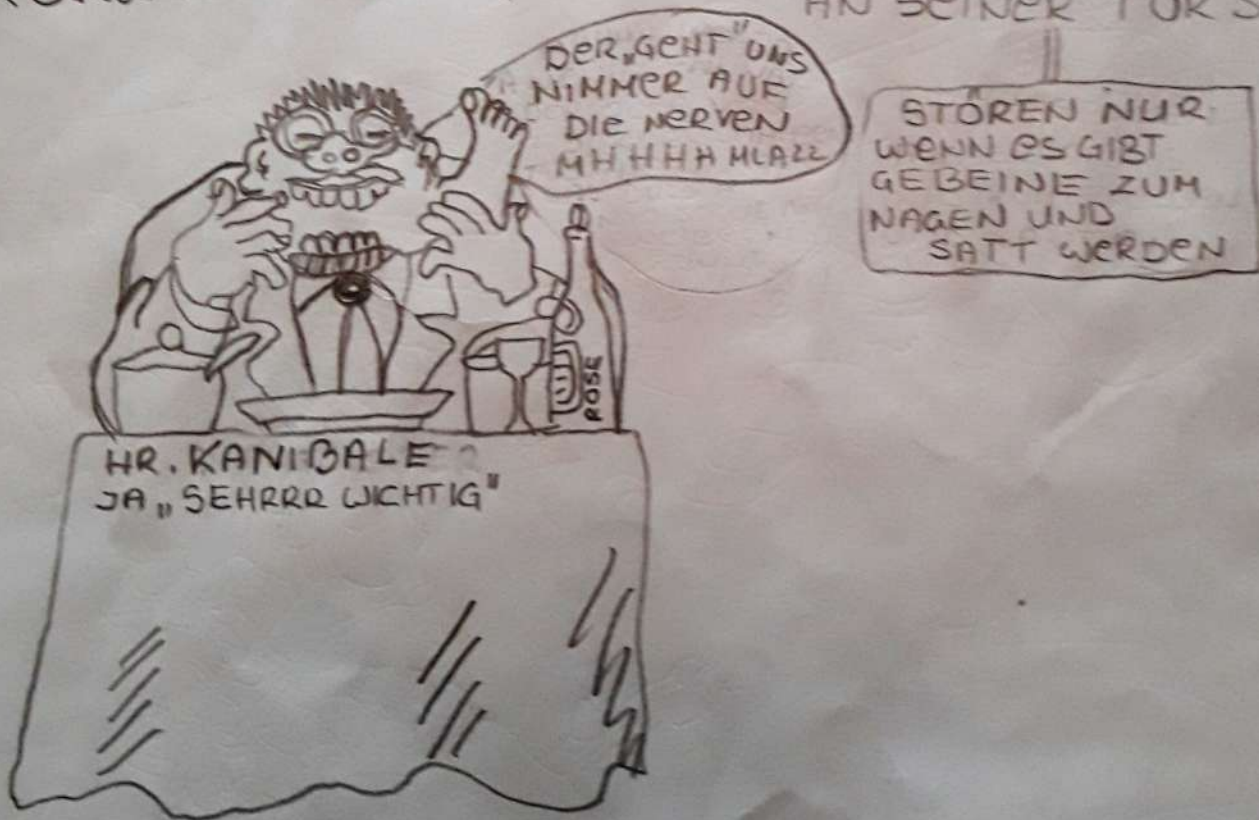 AN SEINER TÜR
DER „GEHT" UNS
NIMMER AUF
DIE NERVEN
MHHHH
STÖREN NUR
WENN ES GIBT
GEBEINE ZUM
NAGEN UND
SATT WERDEN
ROSE
HR. KANIBALE
JA „SEHRRR WICHTIG"